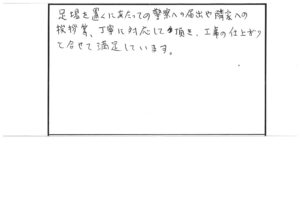 足場を置くにあたっての警察への届出や隣家への
挨拶等、丁寧に対応して頂き、工事の仕上がり
と合せて満足しています。